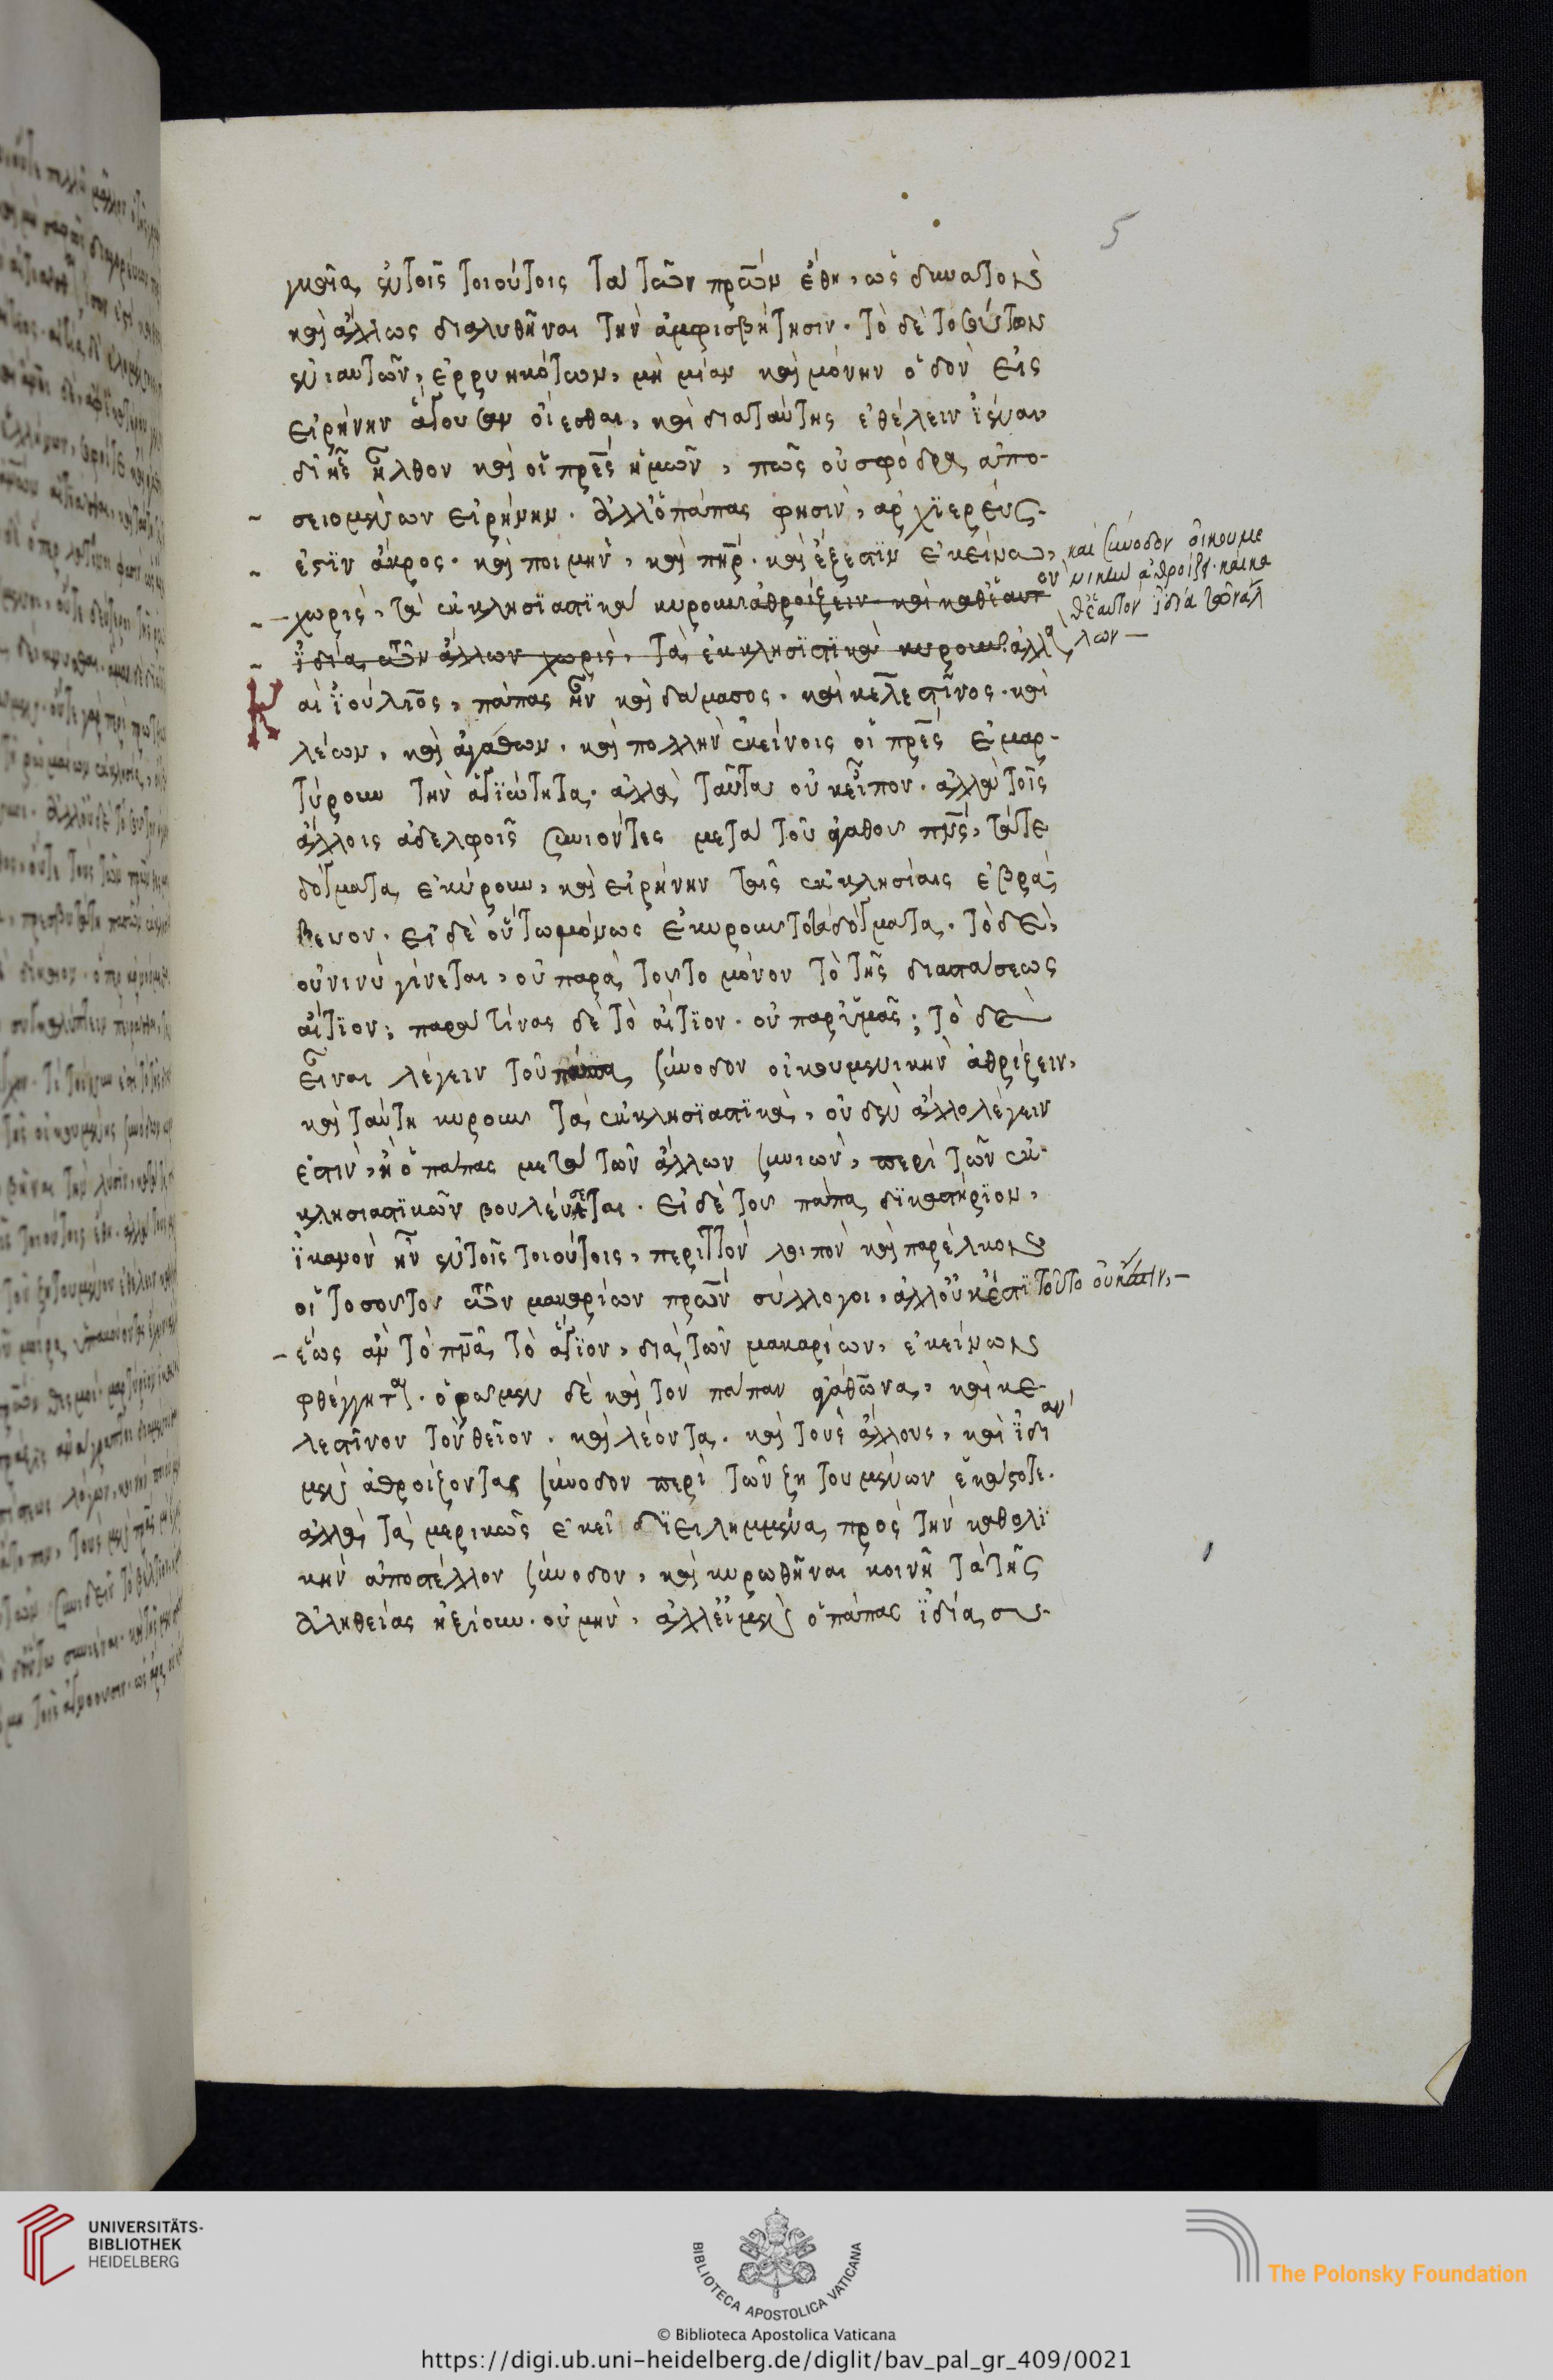 5
γκαῖα ἐν τοῖς τοιούτοις τὰ τῶν πρῶν ἔθη, ὡς δυνατὸν
καὶ ἄλλως διαλυθῆναι τὴν ἀμφισβήτησιν. τὸ δὲ τοσούτων
ἐνιαυτῶν, ἐρρυηκότων, μὴ μίαν καὶ μόνην ὁδὸν εἰς
εἰρήνην ἄγουσαν οἴεσθαι, καὶ διαταύτης ἐθέλειν ἰέναι
δι ἧς ἦλθον καὶ οἱ πρες ἡμῶν, πῶς οὐ σφόδρα ἀπο-
σειομένων εἰρήνην. ἀλλ ὁ πάπας φησὶν, ἀρχϊερεύς
ἐστϊν ἄκρος. καὶ ποιμὴν, καὶ πηρ. καὶ ἔξεστϊν ἐκείνω,
χωρὶς, τὰ ἐκκλησϊαστϊκὰ κυροῦν ἀθροίζειν καὶ καθ ἑαυτ ον
ϊδία τῶν ἄλλων χωρὶς, τὰ ἐκκλησϊαστϊκὰ κυροῦν. ἀλλὰ
καὶ σύνοδον οἰκουμε
νικὴν ἀθροίζειν. καὶ κα
θ ἑαυτὸν ἰδία τῶν ἄλ
λων
Καὶ ϊούλιος, πάπας ἦν καὶ δάμασος. καὶ κελεστῖνος. καὶ
λέων, καὶ ἀγάθων. καὶ πολλὴν ἐκείνοις οἱ πρες ἐμαρ-
τύρουν τὴν ἁγϊώτητα. ἀλλὰ ταῦτα οὐκ εἶπον. ἀλλὰ τοῖς
ἄλλοις ἀδελφοῖς συνιόντες μετὰ τοῦ ἀγαθοῦ πνς, τάτε
δόγματα ἐκύρουν, καὶ εἰρήνην ταῖς ἐκκλησίαις ἐβρά-
βευον. εἰ δὲ οὕτω μόνως ἐκυροῦντο τὰ δόγματα. τὸ δὲ,
οὐ νινὺ γίνεται, οὐ παρὰ τοῦτο μόνον τὸ τῆς διαστάσεως
αἴτϊον; παρὰ τίνας δὲ τὸ αἴτϊον. οὐ παρ ὑμᾶς; τὸ δὲ
εἶναι λέγειν τοῦ πάπα σύνοδον οἰκουμενικὴν ἀθρίζειν,
καὶ ταύτη κυροῦν τὰ ἐκκλησϊαστϊκὰ, οὐδὲν ἄλλο λέγειν
ἐστιν, ἢ ὁ πάπας μετὰ τῶν ἄλλων συνιὼν, περὶ τῶν ἐκ-
κλησιαστϊκῶν βουλεύσεται. εἰ δὲ τοῦ πάπα δϊκαστήρϊον,
ϊκανὸν ἦν ἐν τοῖς τοιούτοις, περιττὸν λοιπὸν καὶ παρέλκον
οἱ τοσοῦτοι τῶν μακαρίων πρῶν σύλλογοι, ἀλλ οὐκ ἔστι τοῦτο οὐκ ἔστιν,
ἕως ἂν τὸ πνᾶ τὸ ἅγϊον, διὰ τῶν μακαρίων, ἐκείνων
φθέγγηται. ὁρῶμεν δὲ καὶ τὸν πάπαν ἀγάθωνα, καὶ κε-
λεστῖνον τὸν θεῖον. καὶ λέοντα. καὶ τοὺς ἄλλους, καὶ ϊδίαν
μὲν ἀθροίζοντας σύνοδον περὶ τῶν ζητουμένων ἑκάστοτε.
ἀλλὰ τὰ μερικῶς ἐκεῖ δϊειλημμένα πρὸς τὴν καθολϊ
κὴν ἀποστέλλον σύνοδον, καὶ κυρωθῆναι κοινῆ τὰ τῆς
ἀληθείας ἠξίουν. οὐ μὴν, ἀλλ εἰ μὲν ὁ πάπας ϊδία συ-
UNIVERSITÄTS-
BIBLIOTHEK
HEIDELBERG
BIBLIOTECA APOSTOLICA VATICANA
The Polonsky Foundation
© Biblioteca Apostolica Vaticana
https://digi.ub.uni-heidelberg.de/diglit/bav_pal_gr_409/0021